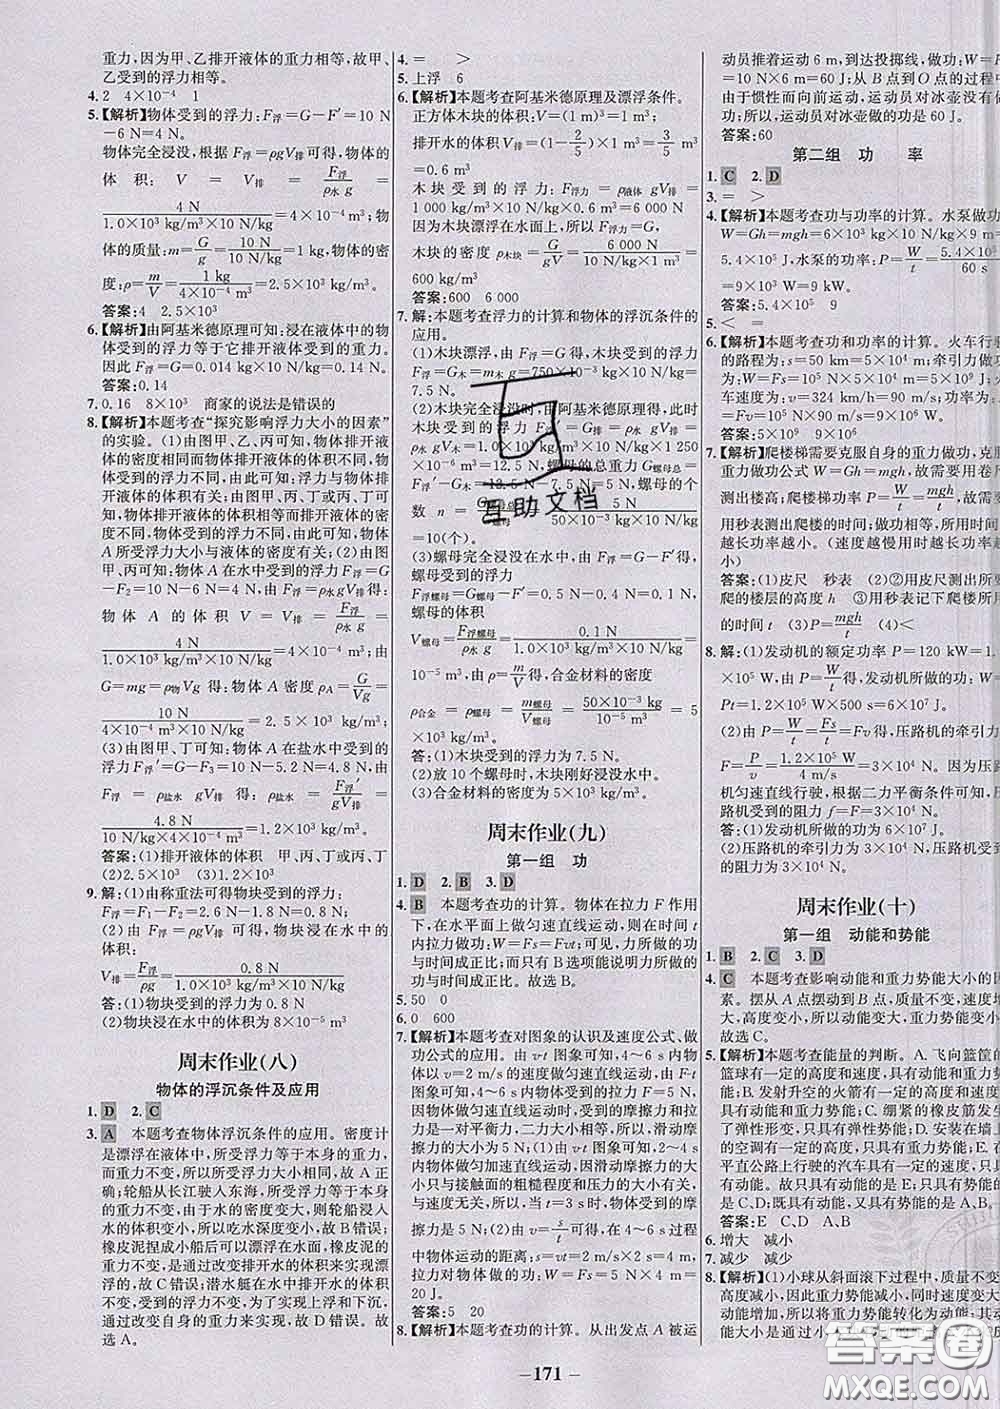 重力,因为甲、乙排开液体的重力相等,故甲、
乙受到的浮力相等。
4. 2 4×10⁻⁴ 1
5.【解析】物体受到的浮力:F浮=G-F′=10 N
-6 N=4 N。
物体完全浸没,根据 F浮=ρgV排可得,物体的
体积:V=V排=F浮/(ρ水 g)=
4 N/(1.0×10³ kg/m³×10 N/kg)=4×10⁻⁴ m³;物
体的质量:m=G/g=10 N/(10 N/kg)=1 kg,物体的密
度:ρ=m/V=1 kg/(4×10⁻⁴ m³)=2.5×10³ kg/m³。
答案:4 2.5×10³
6.【解析】由阿基米德原理可知:浸在液体中的物
体受到的浮力等于它排开液体受到的重力。
因此 F浮=G排=m排g=0.014 kg×10 N/kg=0.14 N。
答案:0.14
7. 0.16 8×10³ 商家的说法是错误的
8.【解析】本题考查“探究影响浮力大小的因素”
的实验。(1)由图甲、乙、丙可知:物体排开液体
的密度相同而物体排开液体的体积不同,物
体受到的浮力不同,故物体受到的浮力大小与
排开液体的体积有关;由图甲、丙、丁或丙、丁可
知:物体排开液体的体积相同而排开液体的密
度不同,物体受到的浮力不同,由此可知:物体
A所受浮力大小与液体的密度有关;(2)由图
甲、丙可知:物体A在水中受到的浮力:F浮=G-
F₂=10 N-6 N=4 N,由 F浮=ρ水 gV排得:
物体 A 的体积 V=V排=F浮/(ρ水 g)=
4 N/(1.0×10³ kg/m³×10 N/kg)=4×10⁻⁴ m³;由
G=mg=ρ物Vg 得:物体 A 密度 ρA=G/(Vg)=
10 N/(4×10⁻⁴ m³×10 N/kg)=2.5×10³ kg/m³。
(3)由图甲、丁可知:物体A在盐水中受到的浮
力 F浮′=G-F₃=10 N-5.2 N=4.8 N,由
F浮′=ρ盐水 gV排得:ρ盐水=F浮′/(gV排)=
4.8 N/(10 N/kg×4×10⁻⁴ m³)=1.2×10³ kg/m³。
答案:(1)排开液体的体积 甲、丙、丁或丙、丁
(2)2.5×10³ (3)1.2×10³
9. 解:(1)由称重法可得物块受到的浮力:
F浮=F₁-F₂=2.6 N-1.8 N=0.8 N。
(2)由 F浮=ρgV排可得,物块浸在水中的
体积:
V排=F浮/(ρg)=0.8 N/(1.0×10³ kg/m³×10 N/kg)=8×10⁻⁵ m³
答:(1)物块受到的浮力为 0.8 N
(2)物块浸在水中的体积为 8×10⁻⁵ m³
周末作业(八)
物体的浮沉条件及应用
1. D 2. C
3. A 本题考查物体浮沉条件的应用。密度计
是漂浮在液体中,所受浮力等于本身的重力,而
重力不变,所以所受浮力不变,故A正
确;轮船从长江驶入东海,所受浮力等于本身的
重力不变,由于水的密度变大,则轮船浸入
水的体积变小,所以吃水深度变小,故B错误;
橡皮泥捏成小船后可以漂浮在水面,橡皮泥重力
不变,是通过改变排开水的体积来实现漂
浮的,故C错误;潜水艇在水中排开水的体积不
变,受到的浮力不变,为了实现上浮和下沉,
通过改变自身的重力来实现,故D错误。故
选A。
4. = >
5. 上浮 6
6.【解析】本题考查阿基米德原理及漂浮条件。
正方体木块的体积:V=(1 m)³=1 m³;
排开水的体积 V排=(1-2/5)×V=3/5×1 m³
=0.6 m³
木块受到的浮力:F浮力=ρ液体 gV排=
1 000 kg/m³×10 N/kg×0.6 m³=6 000 N
因为木块漂浮在水面上,所以F浮力=G,
木块的密度 ρ木块=G/(gV)=6 000 N/(10 N/kg×1 m³)=
600 kg/m³
答案:600 6 000
7. 解:本题考查浮力的计算和物体的浮沉条件的
应用。
(1)木块漂浮,由 F浮=G得,木块受到的浮力
F浮=G木=m木g=750×10⁻³ kg×10 N/kg=
7.5 N。
(2)木块完全浸没时,由阿基米德原理得,此时
木块受到的浮力 F浮′=G排=ρ水gV排=
ρ水 gV木=1.0×10³ kg/m³×10 N/kg×1 250
×10⁻⁶ m³=12.5 N,螺母的总重力 G螺母总=
F浮′-G木=12.5 N-7.5 N=5 N,螺母的个
数 n=G螺母总/G螺母=5 N/(50×10⁻³ kg×10 N/kg)
=10(个)。
(3)螺母完全浸没在水中,由 F浮=G-F′得,
螺母受到的浮力
F浮螺母=G螺母-F′=0.5 N-0.4 N=0.1 N,
螺母的体积
V螺母=F浮螺母/(ρ水 g)=0.1 N/(1.0×10³ kg/m³×10 N/kg)
=10⁻⁵ m³,由 ρ=m/V得,合金材料的密度
ρ合金=ρ螺母=m螺母/V螺母=50×10⁻³ kg/10⁻⁵ m³=5
×10³ kg/m³。
答:(1)木块受到的浮力为 7.5 N。
(2)放 10 个螺母时,木块刚好浸没水中。
(3)合金材料的密度为 5×10³ kg/m³。
周末作业(九)
第一组 功
1. D 2. B 3. D
4. B 本题考查功的计算。物体在拉力 F 作用
下,在水平面上做匀速直线运动,在时间 t
内拉力做功:W=Fs=Fvt;可见,力所做的功
与时间成正比,而只有B选项能说明力所做的
功与时间成正比。故选B。
5. 50 0
6. 0 600
7.【解析】本题考查对图象的认识及速度公式、做
功公式的应用。由 v-t 图象可知,4~6 s 内物
体以 4 m/s 的速度做匀速直线运动,由 F-t
图象可知,4~6 s 内物体所受的拉力 F=5 N,
因物体做匀速直线运动时,受到的摩擦力和拉
力是一对平衡力,大小相等,所以,滑动摩擦
力的大小为 5 N;(1)由 v-t 图象可知,2~4 s
内,物体做加速运动,因滑动摩擦力的大
小只与接触面的粗糙程度和压力的大小有关,
与速度无关,所以,当 t=3 s 时,物体受到的摩
擦力是 5 N;(2)由 v=s/t可得,在 4~6 s过程
中物体运动的距离:s=vt=2 m/s×2 s=4 m,
拉力对物体做的功:W=Fs=5 N×4 m=
20 J。
答案:5 20
8.【解析】本题考查功的计算。从出发点 A 被运
动员推着运动 6 m,到达投掷线,做功:W=F
=10 N×6 m=60 J;从 B 点到 O 点的过程中
由于惯性而向前运动,运动员对冰壶不做
功;所以,运动员对冰壶做的功是 60 J。
答案:60
第二组 功 率
1. C 2. D
3. = >
4.【解析】本题考查功与功率的计算。水泵做功
W=Gh=mgh=6×10³ kg×10 N/kg×9 m=
5.4×10⁵ J,水泵的功率:P=W/t=5.4×10⁵/60 s
=9×10³ W=9 kW。
答案:5.4×10⁵ 9
5. < =
6.【解析】本题考查功和功率的计算。火车行驶
的路程为:s=50 km=5×10⁴ m;牵引力做功
为:W=Fs=1×10⁵ N×5×10⁴ m=5×10⁹ J;
车速度为:v=324 km/h=90 m/s;功率为:P=
Fv=1×10⁵ N×90 m/s=9×10⁶ W。
答案:5×10⁹ 9×10⁶
7.【解析】爬楼梯需要克服自身的重力做功,克服
重力做功公式 W=Gh=mgh,故需要用卷尺
测出楼高;爬楼梯功率 P=W/t=mgh/t,所以需要
用秒表测出爬楼的时间;做功相等,所用时间
越长功率越小。(速度越慢用时越长功率越
小)
答案:(1)皮尺 秒表 (2)②用皮尺测出所
爬的楼层的高度 h ③用秒表记下爬楼所用
的时间 t (3)P=mgh/t (4)<
8. 解:(1)发动机的额定功率 P=120 kW=1.
×10⁵ W,由 P=W/t得,发动机所做的功:W=
Pt=1.2×10⁵ W×500 s=6×10⁷ J。
(2)由 P=W/t=Fs/t=Fv得,压路机的牵引力
F=P/v=1.2×10⁵ W/(4 m/s)=3×10⁴ N。因为压路
机匀速直线行驶,根据二力平衡条件可知,压
路机受到的阻力 f=F=3×10⁴ N。
答:(1)发动机所做的功为 6×10⁷ J。
(2)压路机的牵引力为 3×10⁴ N,压路机受到
的阻力为 3×10⁴ N。
周末作业(十)
第一组 动能和势能
1. B 2. C 3. D
4. C 本题考查影响动能和重力势能大小的因
素。摆从A点摆动到B点,质量不变,速度
变大,高度变小,所以动能变大,重力势能变小,
故选C。
5.【解析】本题考查能量的判断。A.飞向篮筐的
篮球有一定的高度和速度,具有动能和重力势
能;B.发射升空的火箭有一定的高度和速度,
具有动能和重力势能;C.绷紧的橡皮筋发生
了弹性形变,只具有弹性势能;D.安装在墙上
的空调有一定高度,只具有重力势能;E.在水
平直公路上行驶的汽车具有一定的速度,只具
有动能。故只具有动能的是E;只具有势能的
是C、D;既具有动能,又具有势能的是A、B。
答案:E C、D A、B
6. 增大 减小
7. 减少 减少
8.【解析】(1)小球从斜面滚下过程中,质量不变,
高度减小,所以重力势能减小,速度增大,
动能增加,所以将重力势能转化为动能;
大小是通过
互助文档
答案圈
MXQE.COM
-171-